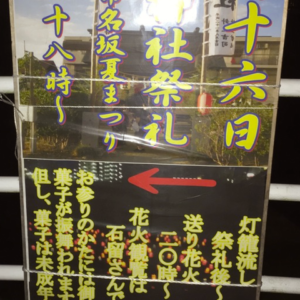 十六日
神社祭礼
市名坂夏まつり
十八時～
灯籠流し
祭礼後～
送り花火
二〇時～
花火観覧は
石留さんで
お参りのかたには御
菓子が振舞われます
但し、菓子は未成年